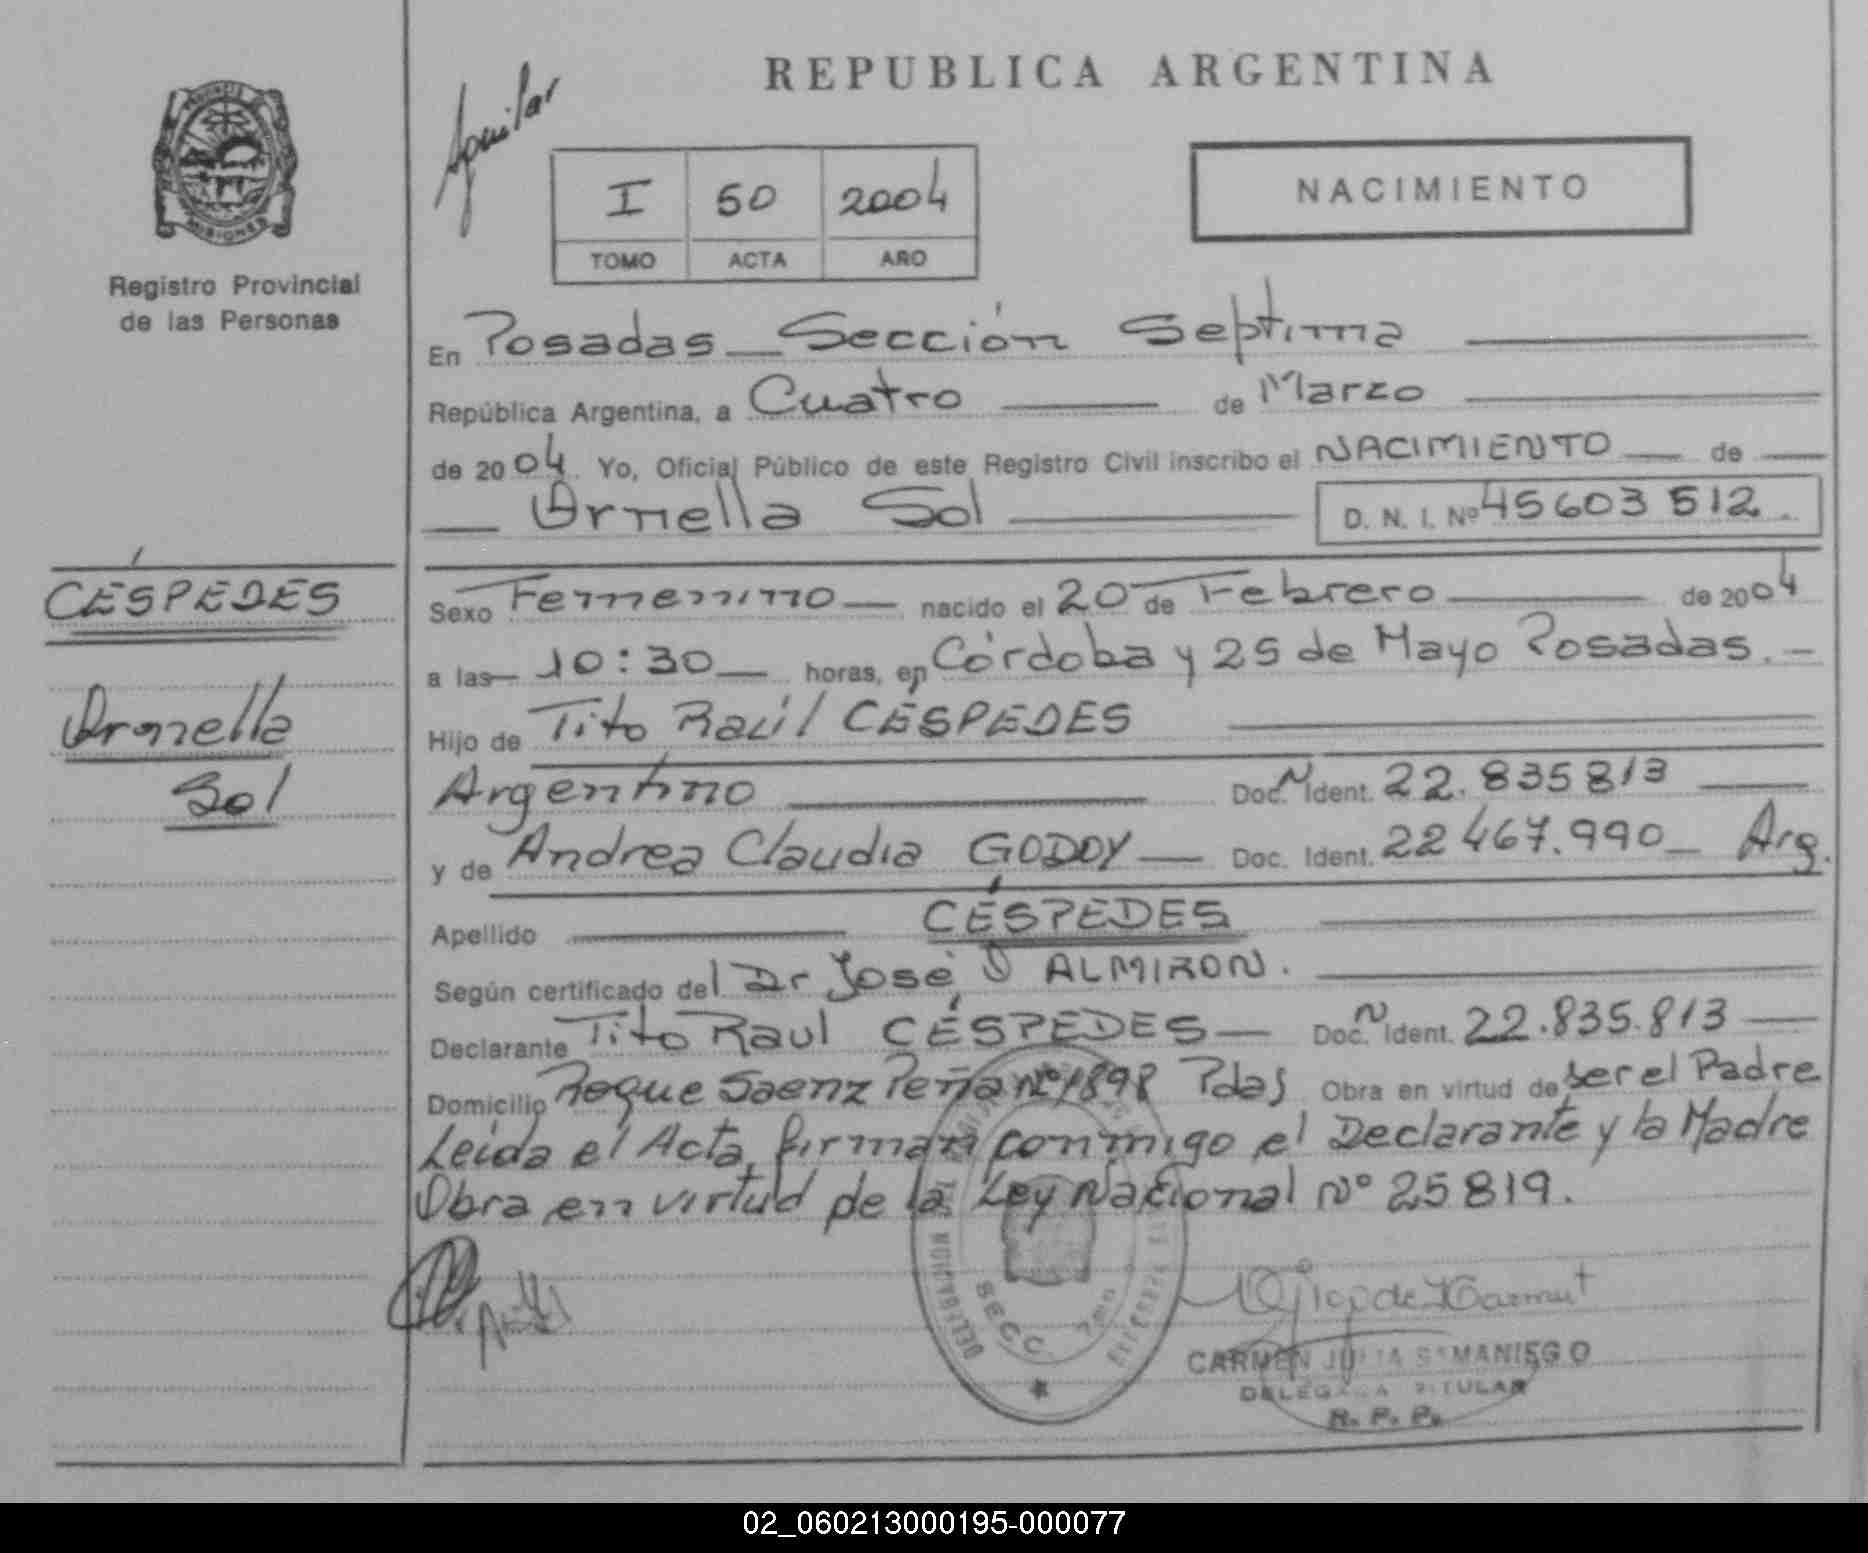 REPUBLICA ARGENTINA
Aguilar
PROVINCIA DE
MISIONES
Registro Provincial
de las Personas
I 50 2004
TOMO ACTA AÑO
NACIMIENTO
En Posadas Sección Septima
República Argentina, a Cuatro de Marzo
de 2004 Yo, Oficial Público de este Registro Civil inscribo el NACIMIENTO de
Ornella Sol D. N. I. Nº 45603 512
CÉSPEDES
Ornella
Sol
Sexo Femenino nacido el 20 de Febrero de 2004
a las 10:30 horas, en Córdoba y 25 de Mayo Posadas.
Hijo de Tito Raúl CÉSPEDES
Argentino Doc. N Ident. 22.835813
y de Andrea Claudia GODOY Doc. Ident. 22 467.990 Arg.
Apellido CÉSPEDES
Según certificado del Dr José O ALMIRON.
Declarante Tito Raul CÉSPEDES Doc. N Ident. 22.835.813
Domicilio Roque Saenz Peña Nº 1898 Pdas Obra en virtud de ser el Padre
Leida el Acta, firman conmigo el Declarante y la Madre
Obra en virtud de la Ley Nacional Nº 25819.
SECC. 7ma
CARMEN JULIA SAMANIEGO
DELEGADA TITULAR
R. P. P.
02_060213000195-000077